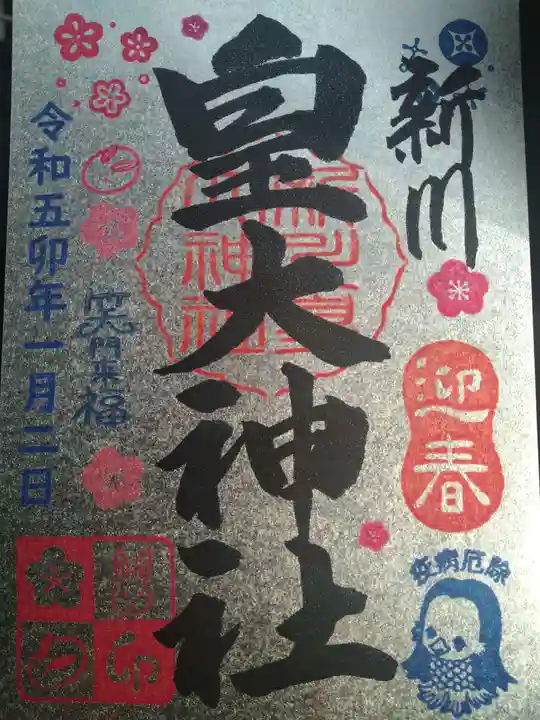 新川
皇大神社
迎春
疫病厄除
笑門来福
令和五卯年一月二日
卯